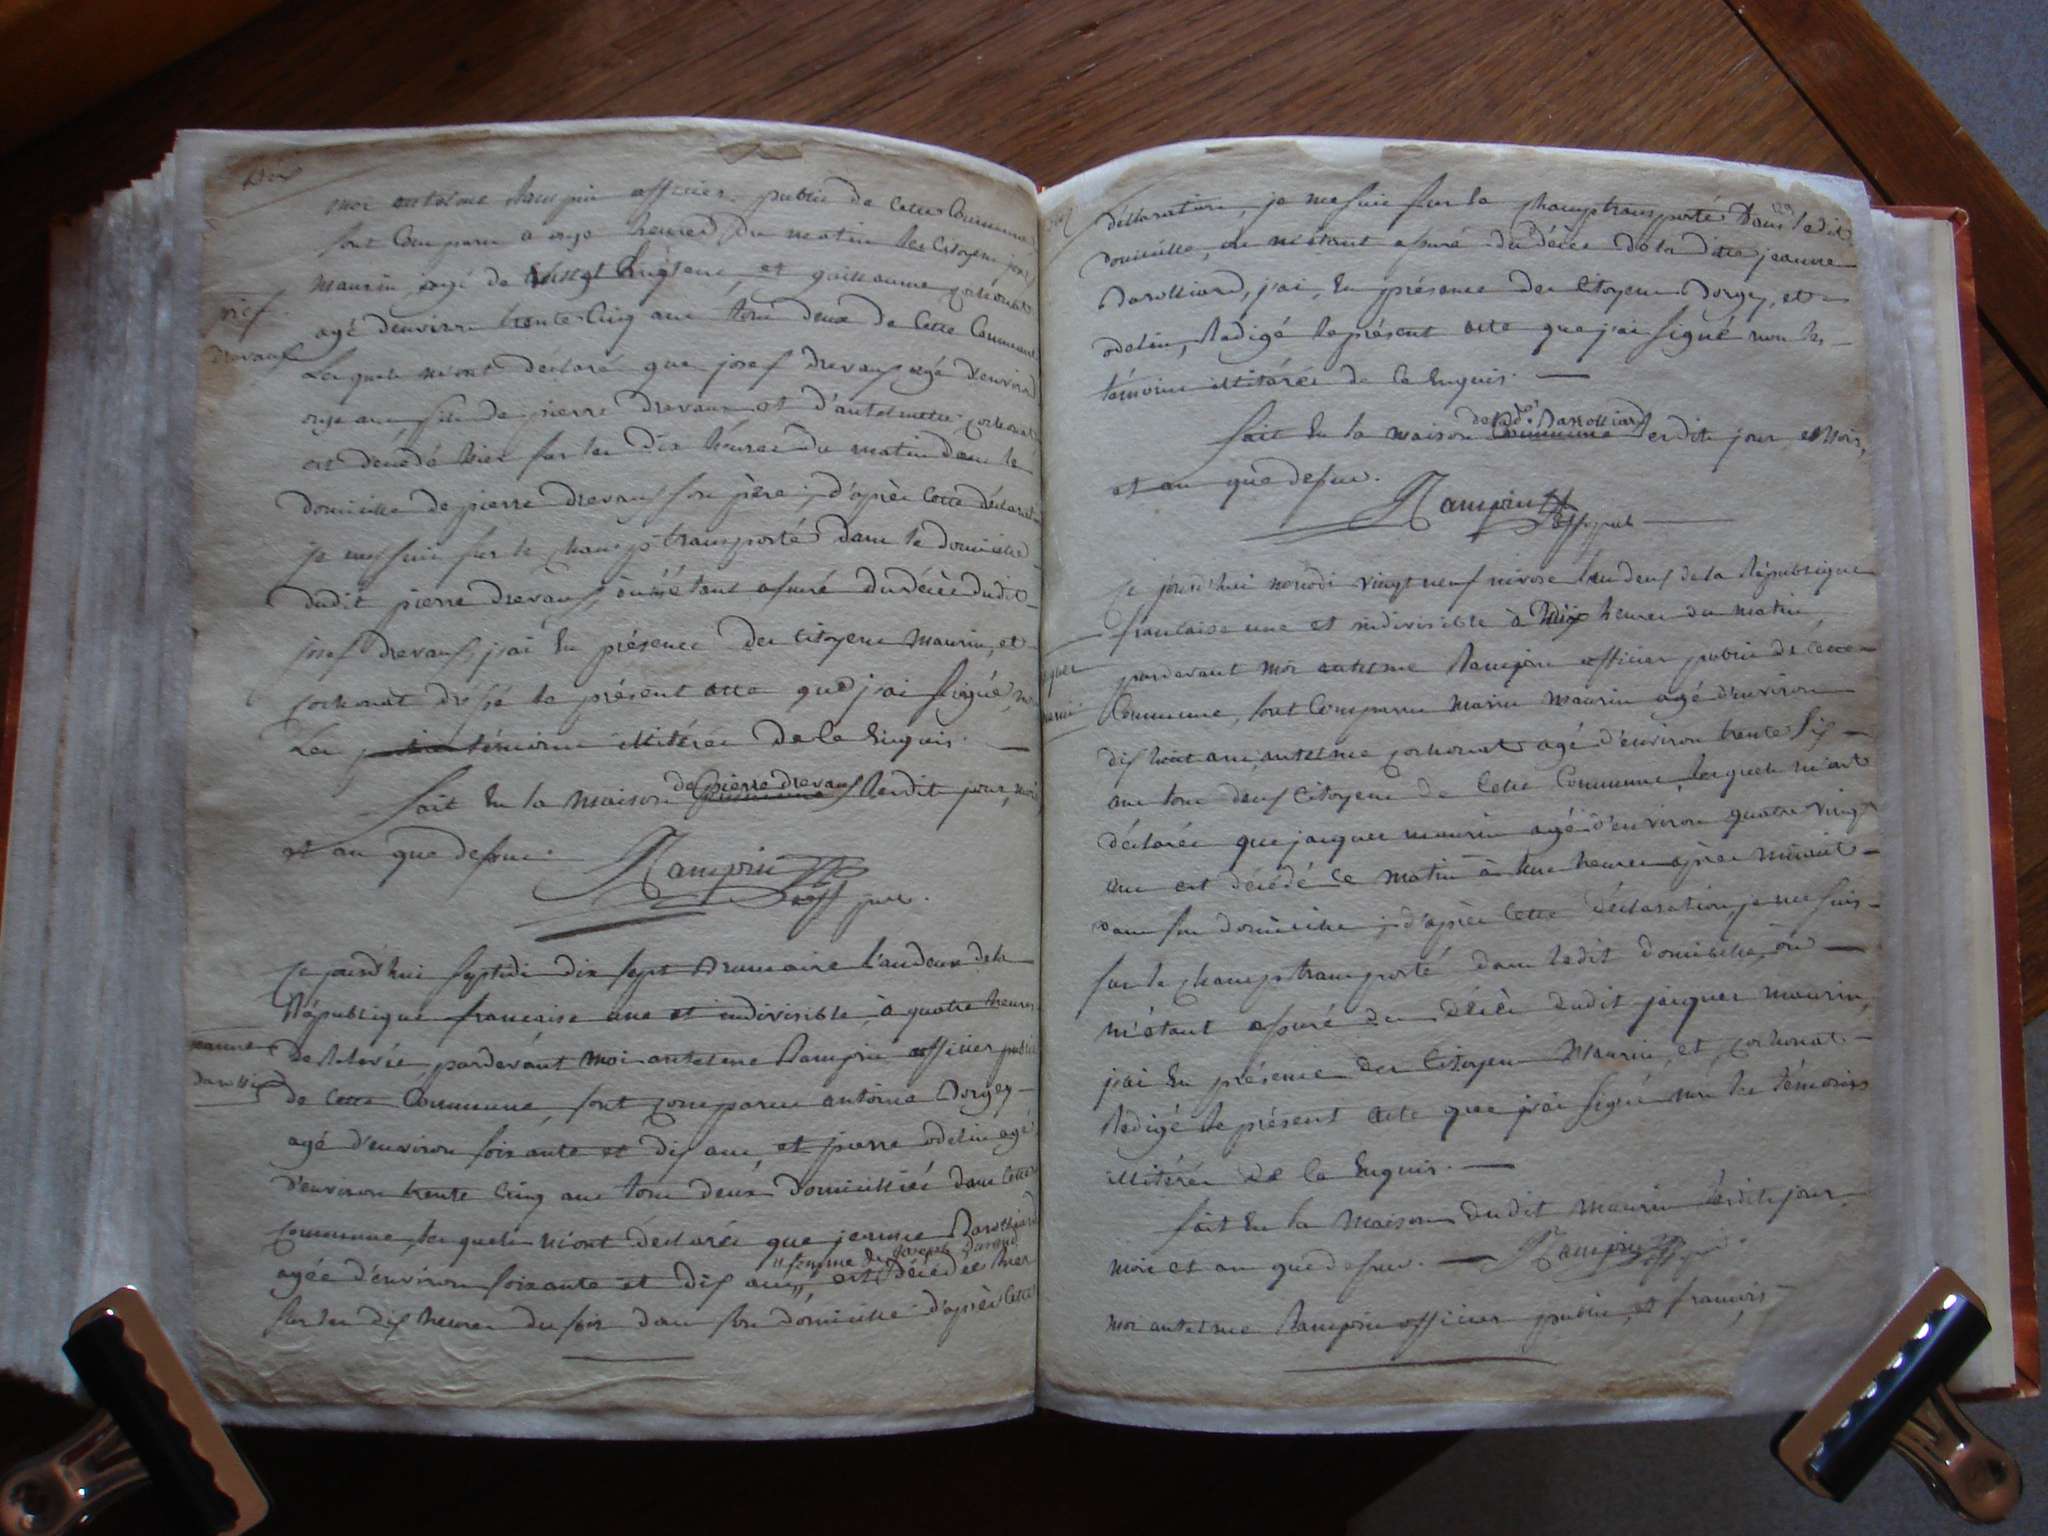 moi antelme Rampin officier public de cette Commune
sont Comparu a onze heures du matin les Citoyens
maurin, agé de et guillaume cochonat
josef
agé d'environ trente Cinq ans tous deux de Cette Commune
drevaux
Lesquels m'ont déclaré que josef drevaux agé d'environ
onze ans fils de pierre drevaux et d'antelmette cochonat
est décédé hier sur les dix heures du matin dans le
domicille de pierre drevaux son père ; d'après Cette déclaration
je me suis sur le champs transporté dans le domicille
dudit pierre drevaux, où m'étant assuré du décès dudit
josef drevaux, j'ai En présence des Citoyens maurin, et
cochonat dressé le présent acte que j'ai signé, non
Les témoins illitérés de Ce Enquis.
de pierre drevaux
fait En la maison Commune Lesdits jour, mois
et an que dessus.
Rampin off pub.
Ce jourd'hui septidi dix sept Brumaire l'an deux de la
République francaise une et indivisible, à quatre heures
jeanne
de Relevée, pardevant moi antelme Rampin officier public
darolliard
de Cette Commune, sont comparus antoine Dorgey
agé d'environ soixante et dix ans, et pierre odelin agé
d'environ trente Cinq ans tous deux Domicilliés dans Cette
Commune, lesquels m'ont déclarés que jeanne Darolliard
femme de joseph durand
agée d'environ soixante et dix ans, est Décédée hier
sur les dix heures du soir dans son domicille d'après Cette
129
déclaration, je me suis sur le champs transporté Dans ledit
domicille, où m'étant assuré du décès de la dite jeanne
Darolliard, j'ai, En présence des Citoyens Dorgey, et
odelin, Rédigé le présent acte que j'ai signé non les
témoins illitérés de Ce Enquis.
de lad. Darolliard
fait En la maison Commune Lesdits jour, et Mois,
et an que dessus.
Rampin off pub
Ce jourd'hui nonodi vingt neuf nivose l'an deux de la République
francaise une et indivisible à dix heures du matin
jaques
pardevant moi antelme Rampin officier public de cette
maurin
Commune, sont Comparus marin maurin agé d'environ
dix huit ans, antelme cochonat agé d'environ trente six
ans tous deux Citoyens de Cette Commune, lesquels m'ont
déclarés que jacques maurin agé d'environ quatre vingt
ans est décédé Ce matin à Une heure après minuit
dans son domicille ; d'après Cette déclaration, je me suis
sur le champs transporté dans ledit domicille, où
m'étant assuré du décès dudit jacques maurin,
j'ai En présence des Citoyens Maurin, et cochonat
Redigé le présent acte que j'ai signé non les témoins
illitérés de Ce Enquis.
fait En la Maison dudit Maurin Lesdits jour
mois et an que dessus. Rampin off pub.
moi antelme Rampin officier public, et francois